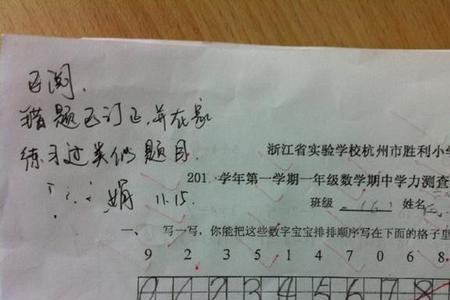 已阅.
错题已订正,并在家
练习过类似题目.
娟 11.15.
浙江省实验学校杭州市胜利小学
201 学年第一学期一年级数学期中学力测查
班级 (6) 姓名
一、 写一写，你能把这些数字宝宝排排顺序写在下面的格子里
9 2 3 5 1 4 7 0 6 8
0 1 2 3 4 5 6 7 8